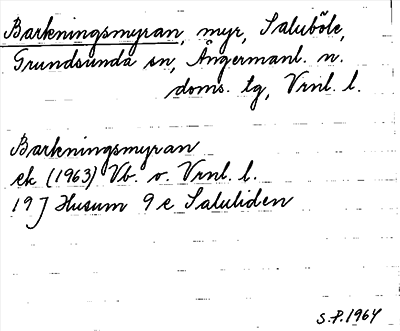 Barkningsmyran, myr, Saluböle,
Grundsunda sn, Ångermanl. n.
doms. lg, Vrnl. l.
Barkningsmyran
ek (1963) Vb. o. Vrnl. l.
19 J Husum 9 e Saluliden
S.P. 1964